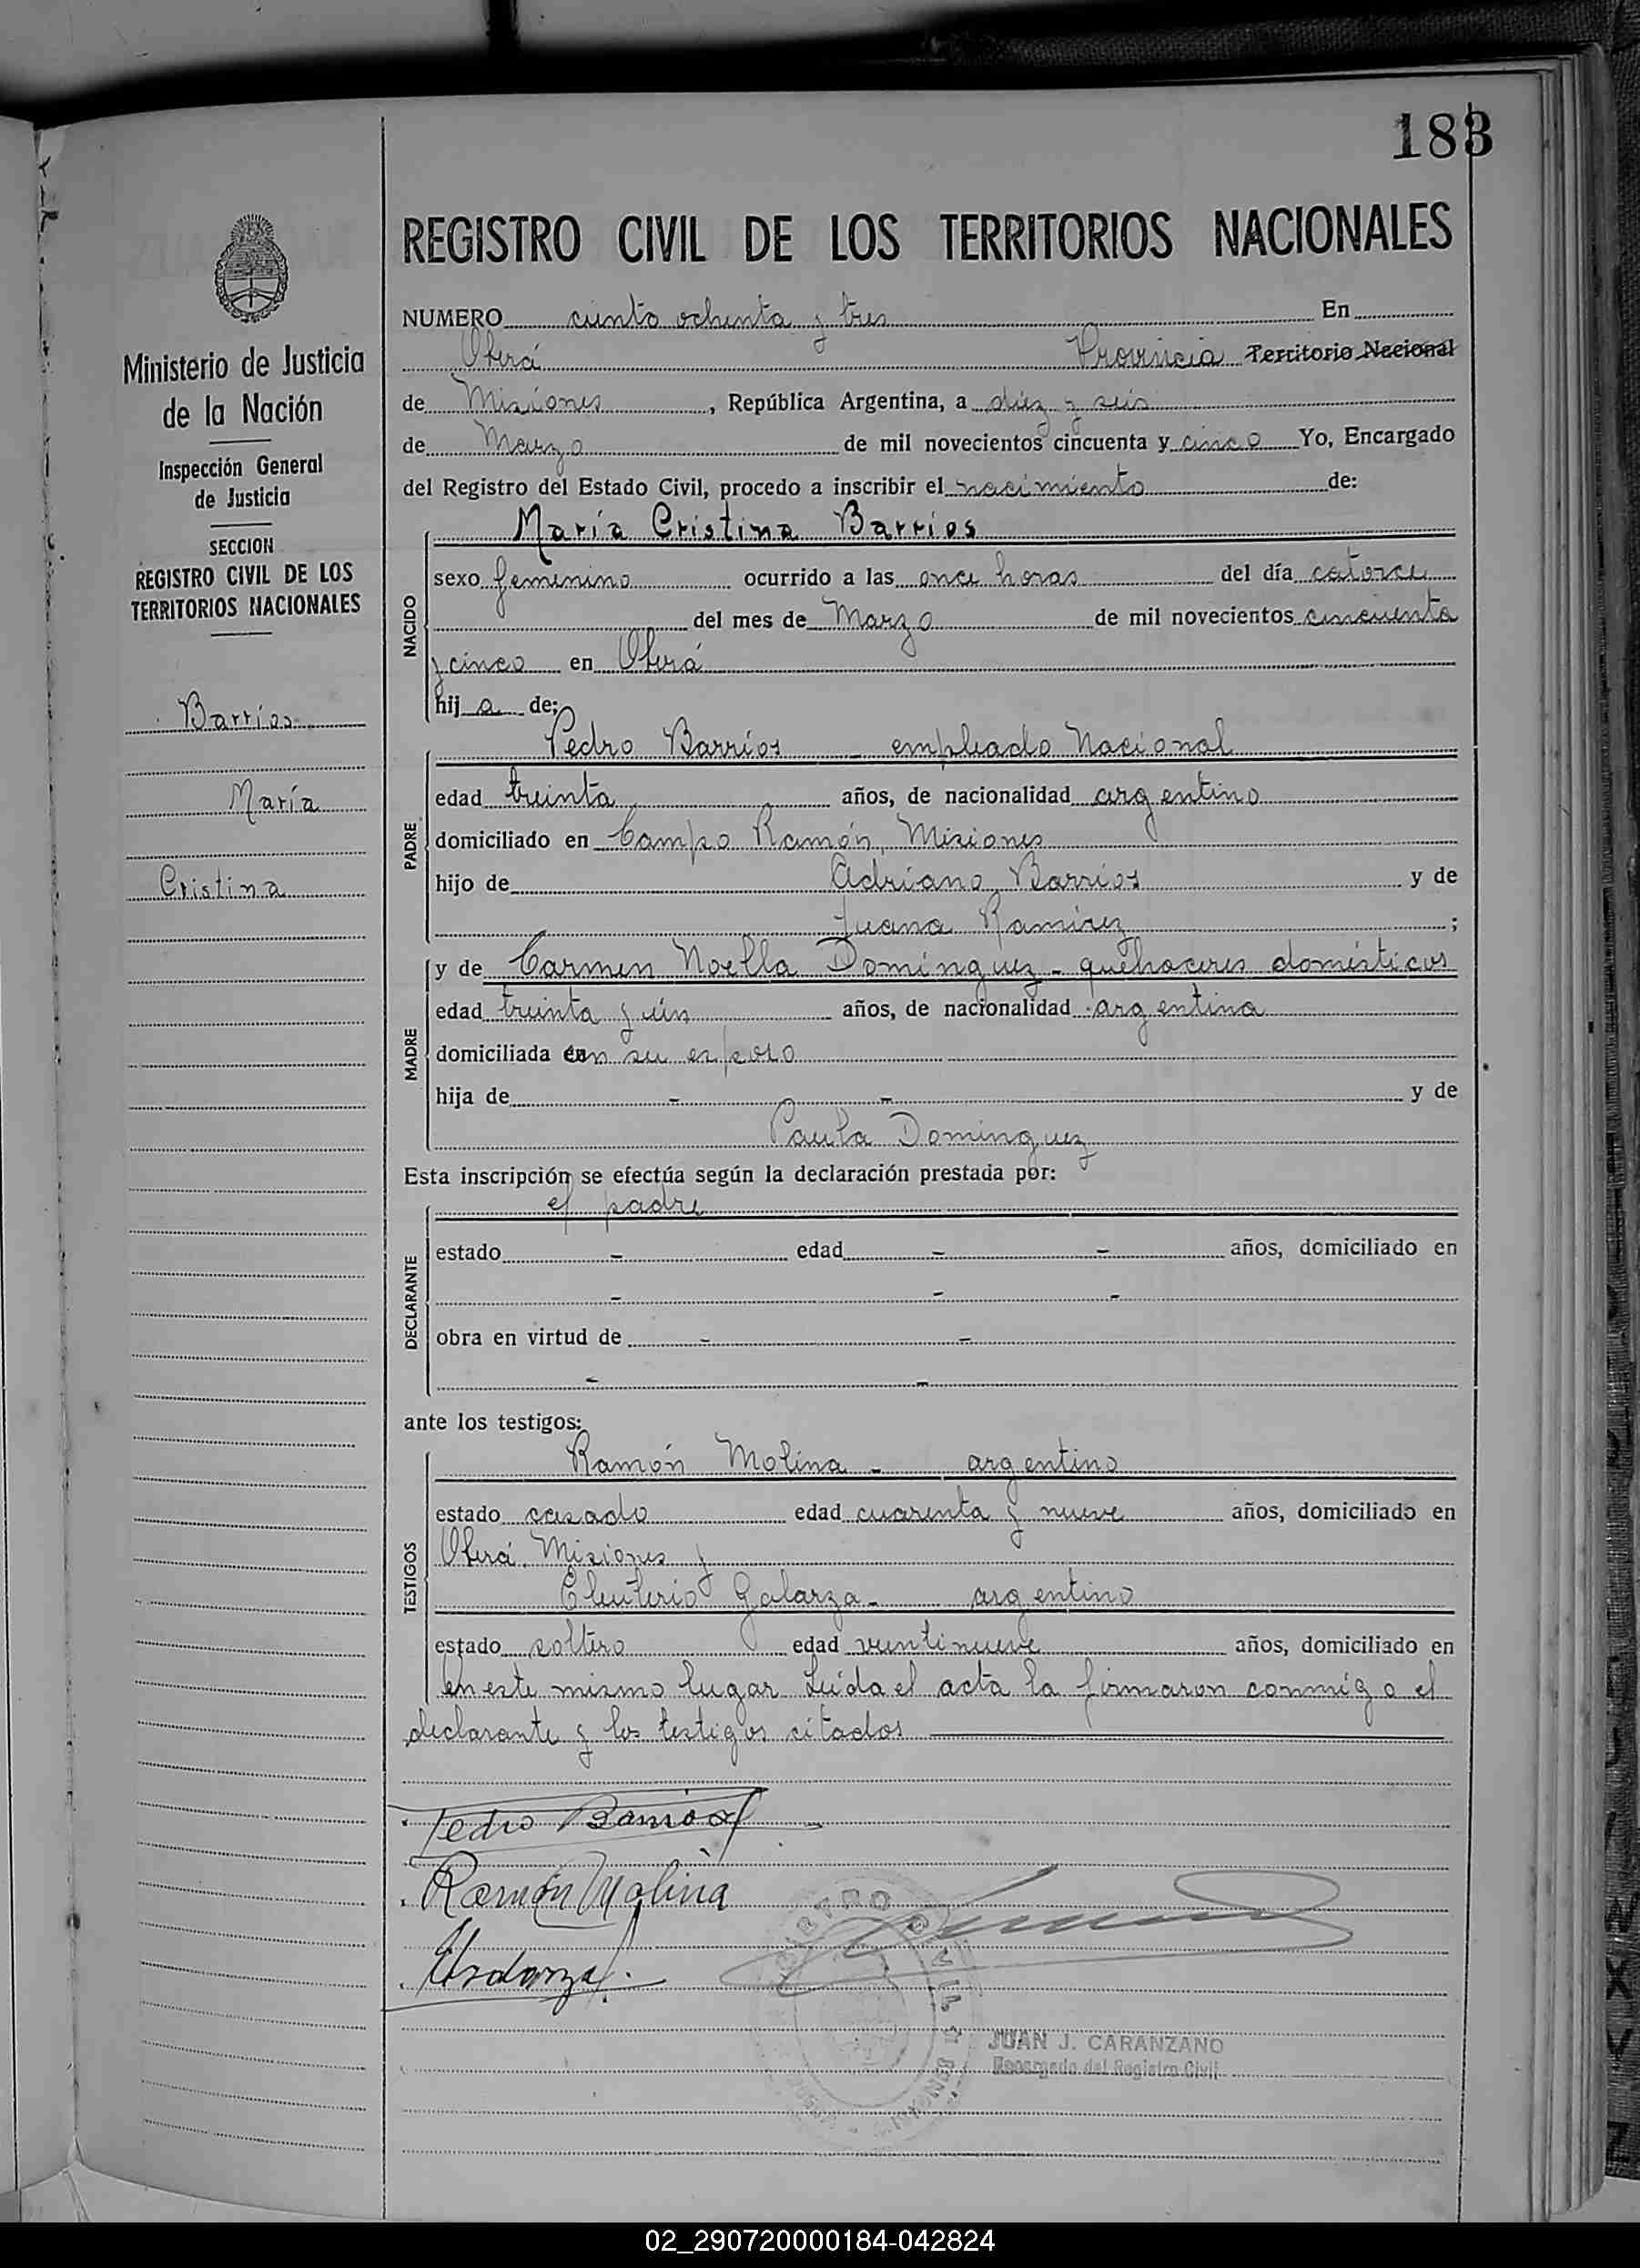 183
REGISTRO CIVIL DE LOS TERRITORIOS NACIONALES
Ministerio de Justicia
de la Nación
Inspección General
de Justicia
SECCION
REGISTRO CIVIL DE LOS
TERRITORIOS NACIONALES
Barrios
María
Cristina
NUMERO ciento ochenta y tres En
Oberá Provincia Territorio Nacional
de Misiones, República Argentina, a diez y seis
de Marzo de mil novecientos cincuenta y cinco Yo, Encargado
del Registro del Estado Civil, procedo a inscribir el nacimiento de:
NACIDO
María Cristina Barrios
sexo femenino ocurrido a las once horas del día catorce
del mes de Marzo de mil novecientos cincuenta
y cinco en Oberá
hij a de:
PADRE
Pedro Barrios - empleado Nacional
edad treinta años, de nacionalidad argentino
domiciliado en Campo Ramón, Misiones
hijo de Adriano Barrios y de
Juana Ramírez ;
MADRE
y de Carmen Noella Domínguez - quehaceres domésticos
edad treinta y ún años, de nacionalidad argentina
domiciliada con su esposo
hija de - - y de
Paula Dominguez
Esta inscripción se efectúa según la declaración prestada por:
DECLARANTE
el padre
estado - edad - - años, domiciliado en
- - -
obra en virtud de - -
- -
ante los testigos:
TESTIGOS
Ramón Molina - argentino
estado casado edad cuarenta y nueve años, domiciliado en
Oberá, Misiones y
Eleuterio Galarza - argentino
estado soltero edad veintinueve años, domiciliado en
en este mismo lugar Leída el acta la firmaron conmigo el
declarante y los testigos citados
Pedro Barrios
Ramón Molina
JUAN J. CARANZANO
Encargado del Registro Civil
02_290720000184-042824